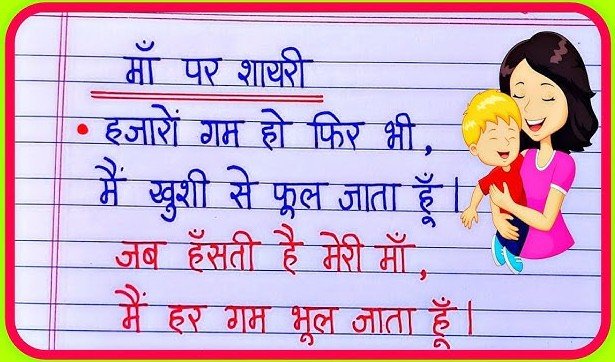 माँ पर शायरी
• हजारों गम हो फिर भी,
मैं खुशी से फूल जाता हूँ।
जब हँसती है मेरी माँ,
मैं हर गम भूल जाता हूँ।